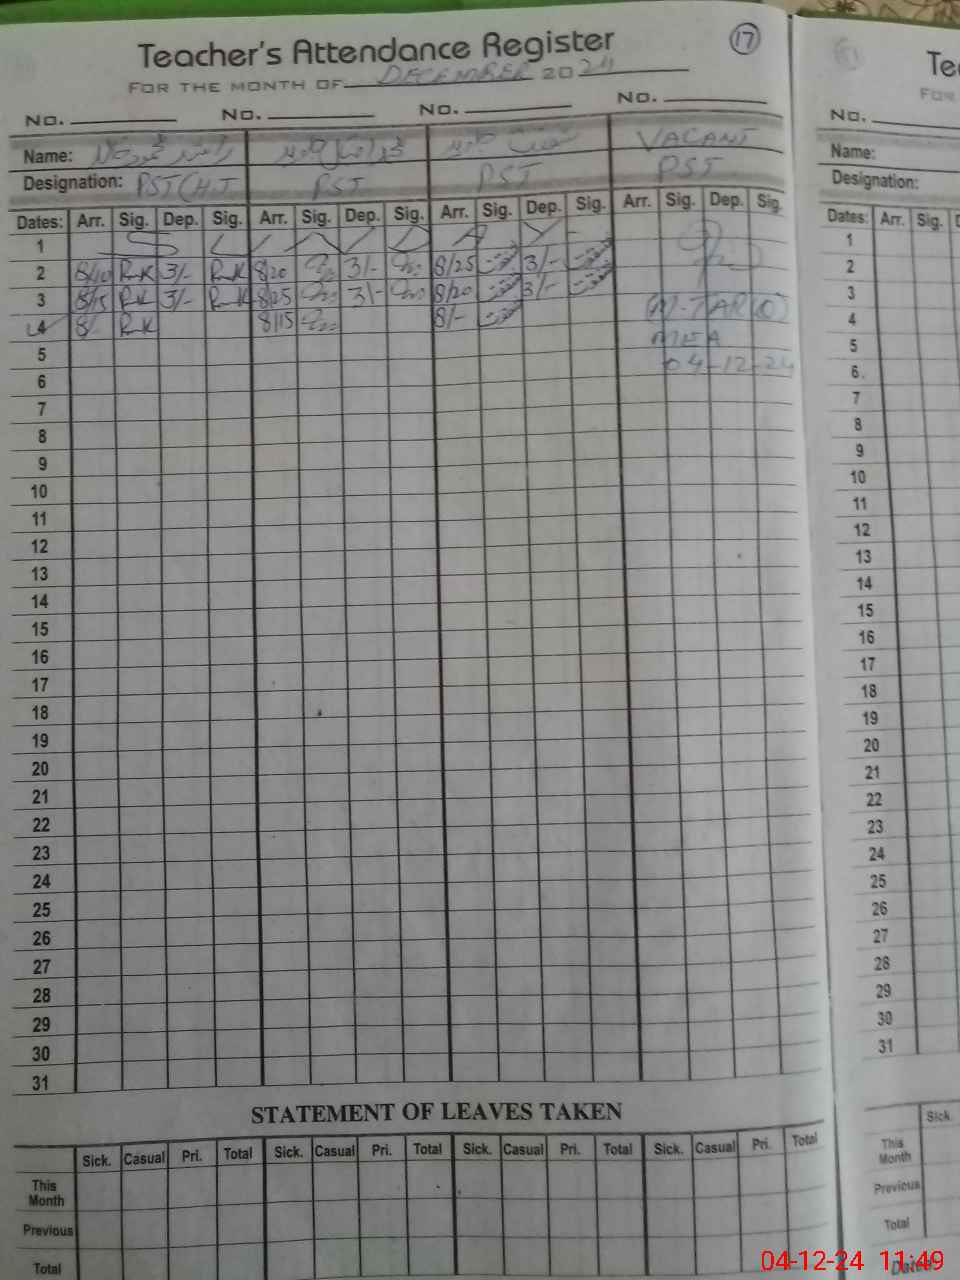 Teacher's Attendance Register
17
FOR THE MONTH OF DECEMBER 2024
No. No. No. No.
Name: VACANT
Designation: PST (H.T PST PST PST
Dates: Arr. Sig. Dep. Sig. Arr. Sig. Dep. Sig. Arr. Sig. Dep. Sig. Arr. Sig. Dep. Sig.
1 S U N D A Y
2 8/10 R.K 3/- R.K 8/20 3/- 8/25 3/-
3 8/15 R.K 3/- R.K 8/25 3/- 8/20 3/- (M-TARIQ)
4 8/- R.K 8/15 8/- MEA
5 04-12-24
6
7
8
9
10
11
12
13
14
15
16
17
18
19
20
21
22
23
24
25
26
27
28
29
30
31
STATEMENT OF LEAVES TAKEN
Sick. Casual Pri. Total Sick. Casual Pri. Total Sick. Casual Pri. Total Sick. Casual Pri. Total
This Month
Previous
Total
Te
FOR
No.
Name:
Designation:
Dates: Arr. Sig. D
1
2
3
4
5
6.
7
8
9
10
11
12
13
14
15
16
17
18
19
20
21
22
23
24
25
26
27
28
29
30
31
Sick.
This Month
Previous
Total
Dated
04-12-24 11:49